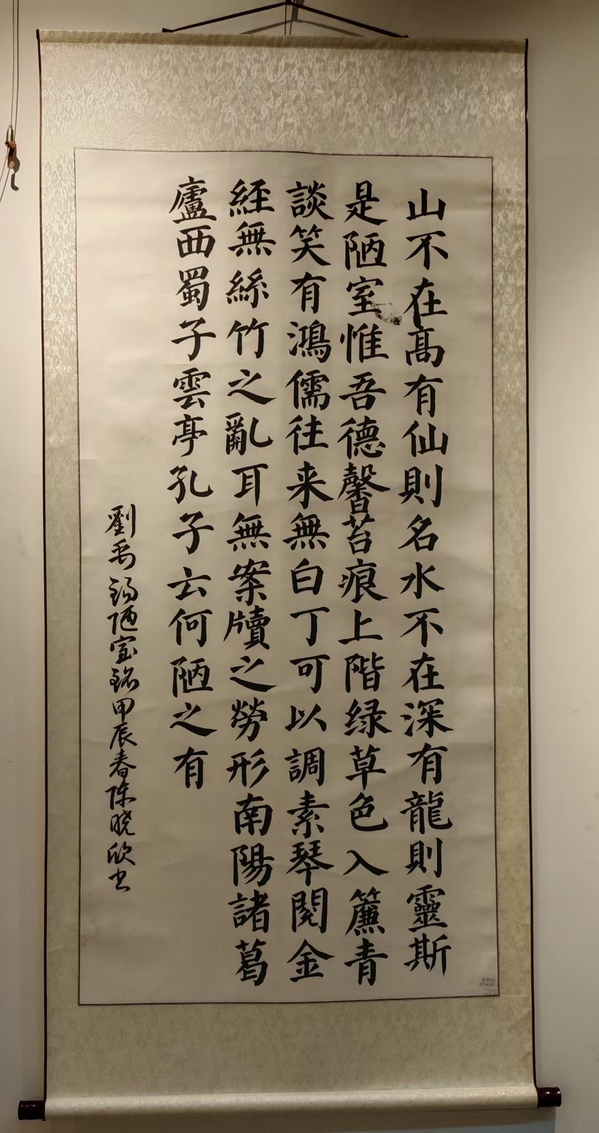 山不在高有仙則名水不在深有龍則靈斯
是陋室惟吾德馨苔痕上階绿草色入簾青
談笑有鴻儒往来無白丁可以調素琴閱金
経無絲竹之亂耳無案牘之勞形南陽諸葛
廬西蜀子雲亭孔子云何陋之有
劉禹錫陋室銘甲辰春陈晓欣书